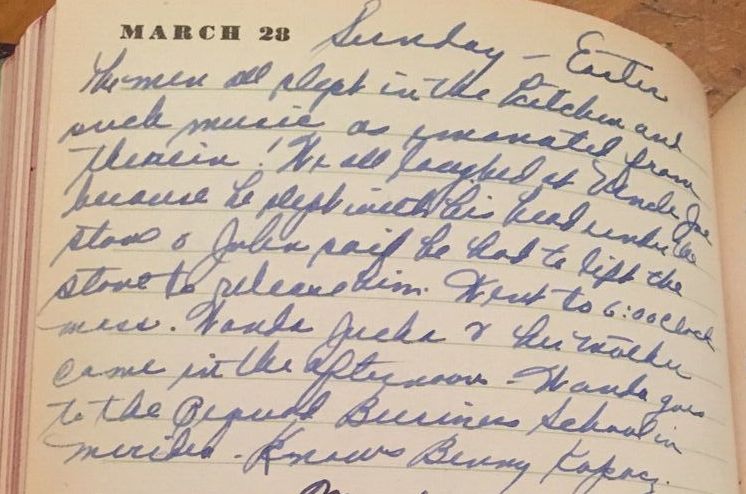 MARCH 28 Sunday - Easter
The men all slept in the kitchen and
such music as emanated from
therein! We all laughed at Uncle Joe
because he slept with his head under the
stove & John said he had to lift the
stove to release him. Went to 6:00 o'clock
mass. Wanda & her mother
came in the afternoon - Wanda goes
to the Pequod Business School in
Meriden - Knows Benny